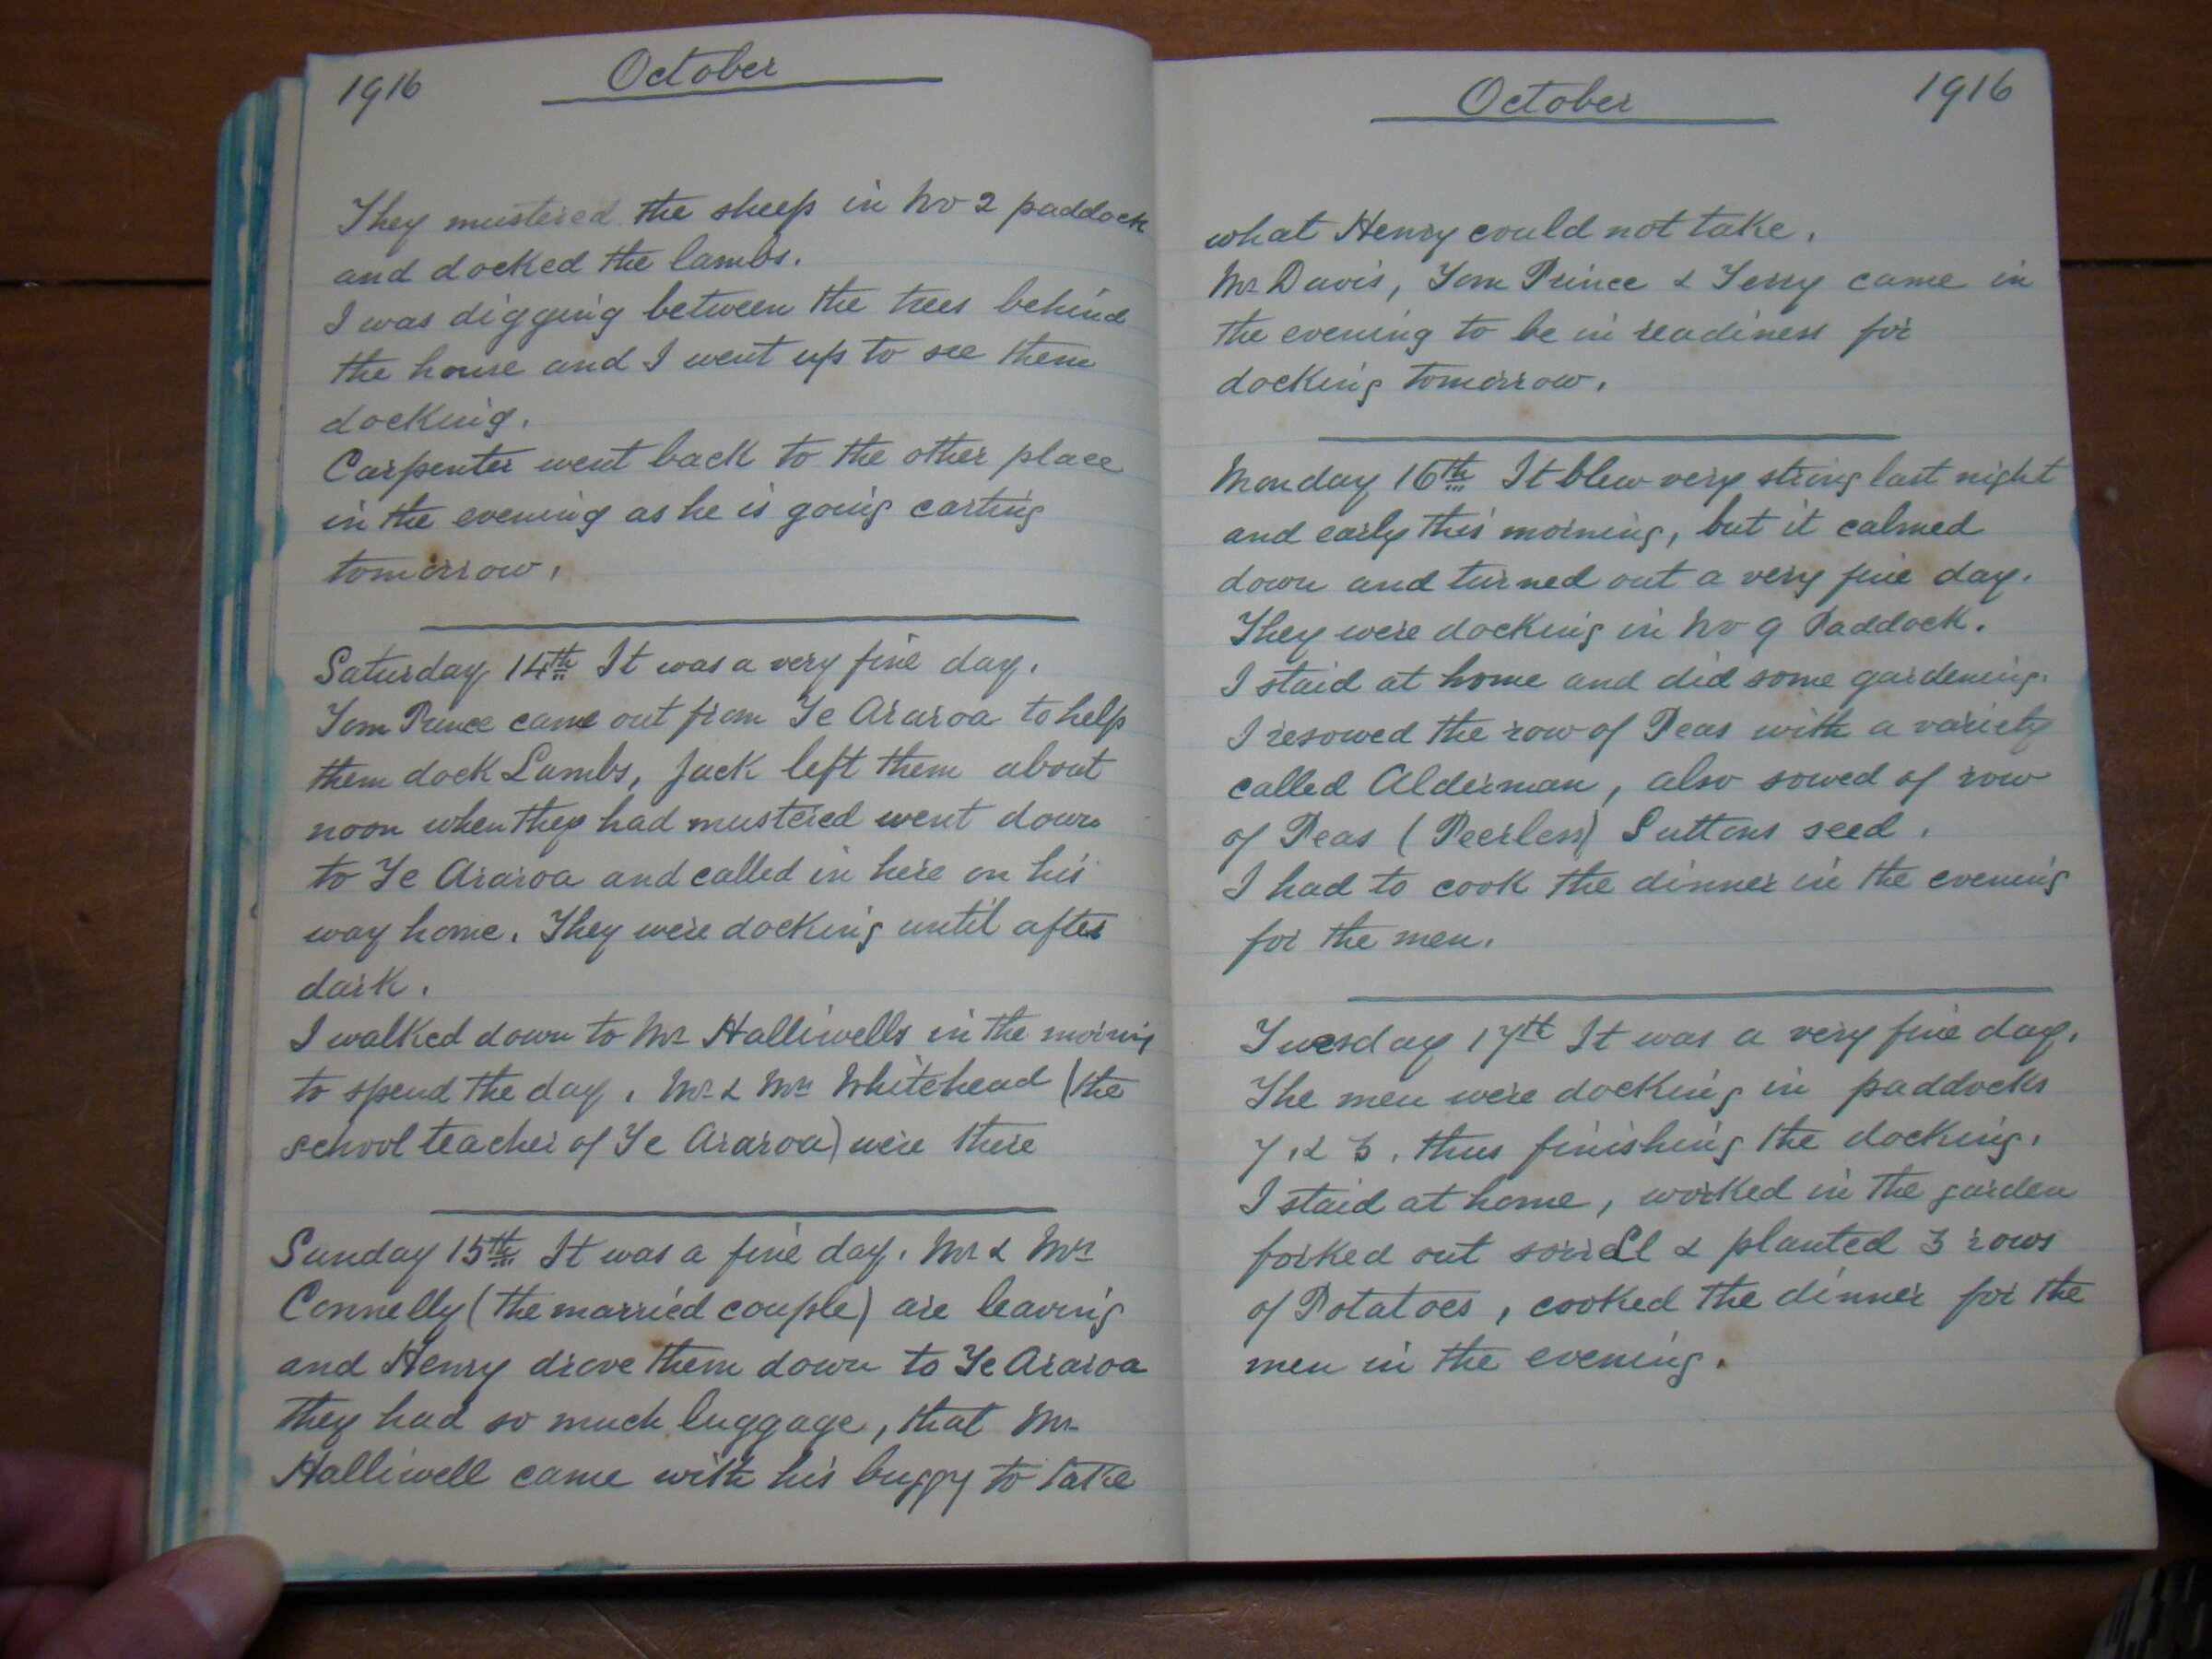 1916 October
They mustered the sheep in No 2 paddock
and docked the lambs.
I was digging between the trees behind
the house and I went up to see them
docking.
Carpenter went back to the other place
in the evening as he is going carting
tomorrow.
Saturday 14th It was a very fine day.
Tom Prince came out from Te Araroa to help
them dock Lambs, Jack left them about
noon when they had mustered went down
to Te Araroa and called in here on his
way home. They were docking until after
dark.
I walked down to Mr Halliwells in the morning
to spend the day. Mr & Mrs Whitehead (the
school teacher of Te Araroa) were there
Sunday 15th It was a fine day. Mr & Mrs
Connelly (the married couple) are leaving
and Henry drove them down to Te Araroa
they had so much luggage, that Mr
Halliwell came with his buggy to take
October 1916
what Henry could not take.
Mr Davis, Tom Prince & Terry came in
the evening to be in readiness for
docking tomorrow.
Monday 16th It blew very strong last night
and early this morning, but it calmed
down and turned out a very fine day.
They were docking in No 9 Paddock.
I staid at home and did some gardening.
I resowed the row of Peas with a variety
called Alderman, also sowed of row
of Peas (Peerless) Suttons seed.
I had to cook the dinner in the evening
for the men.
Tuesday 17th It was a very fine day.
The men were docking in paddocks
7. & 3. thus finishing the docking.
I staid at home, worked in the garden
forked out sorrell & planted 3 rows
of Potatoes, cooked the dinner for the
men in the evening.